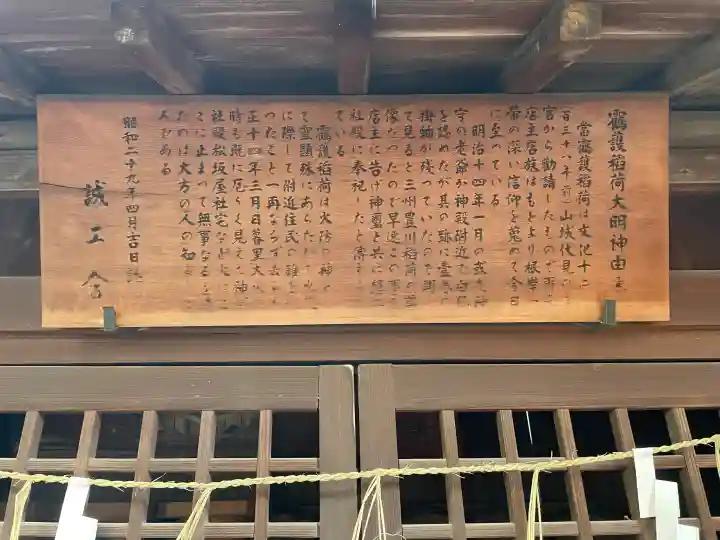 靏護稲荷大明神由来
当靏護稲荷は文化十二
(百三十八年前)山城伏見の
宮から勧請したもので
店主宮族はもとより根岸
帯の深い信仰を蒐めて今日
に至っている
明治十四年一月の或夜神
守の老爺が神殿附近で白
を認めたが其の跡に
掛軸が残っていたので開
て見ると三州豊川稲荷の
像だったので早速
店主に告げ神璽と共に
社殿に奉祀したと
ている
靏護稲荷は火防の神と
て霊顕殊にあらたか
に際して附近住民の難を
ったこと一再ならず
正十四年三月日暮里大火
時も既に危うく見えた神
社殿松坂屋社宅など
こに止まって無事なる
たのは大方の人の知
ろである
昭和二十九年四月吉日
誠工会